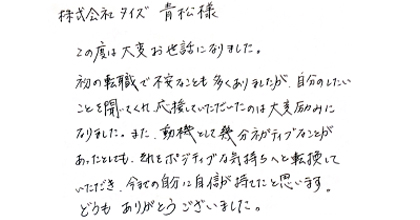 株式会社タイズ 青松様
この度は大変お世話になりました。
初の転職で不安なことも多くありましたが、自分のしたい
ことを聞いてくれ、応援していただいたのは大変励みに
なりました。また、動機として幾分ネガティブなことが
あったとしても、それをポジティブな気持ちへと転換して
いただき、今までの自分に自信が持てたと思います。
どうもありがとうございました。